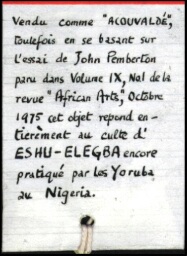 Vendu comme "ACOUVALDÉ",
toutefois en se basant sur
l'essai de John Pemberton
paru dans Volume IX, No1 de la
revue "African Arts," Octobre
1975 cet objet repond en-
tierèment au culte d'
ESHU-ELEGBA encore
pratiqué par les Yoruba
au Nigeria.